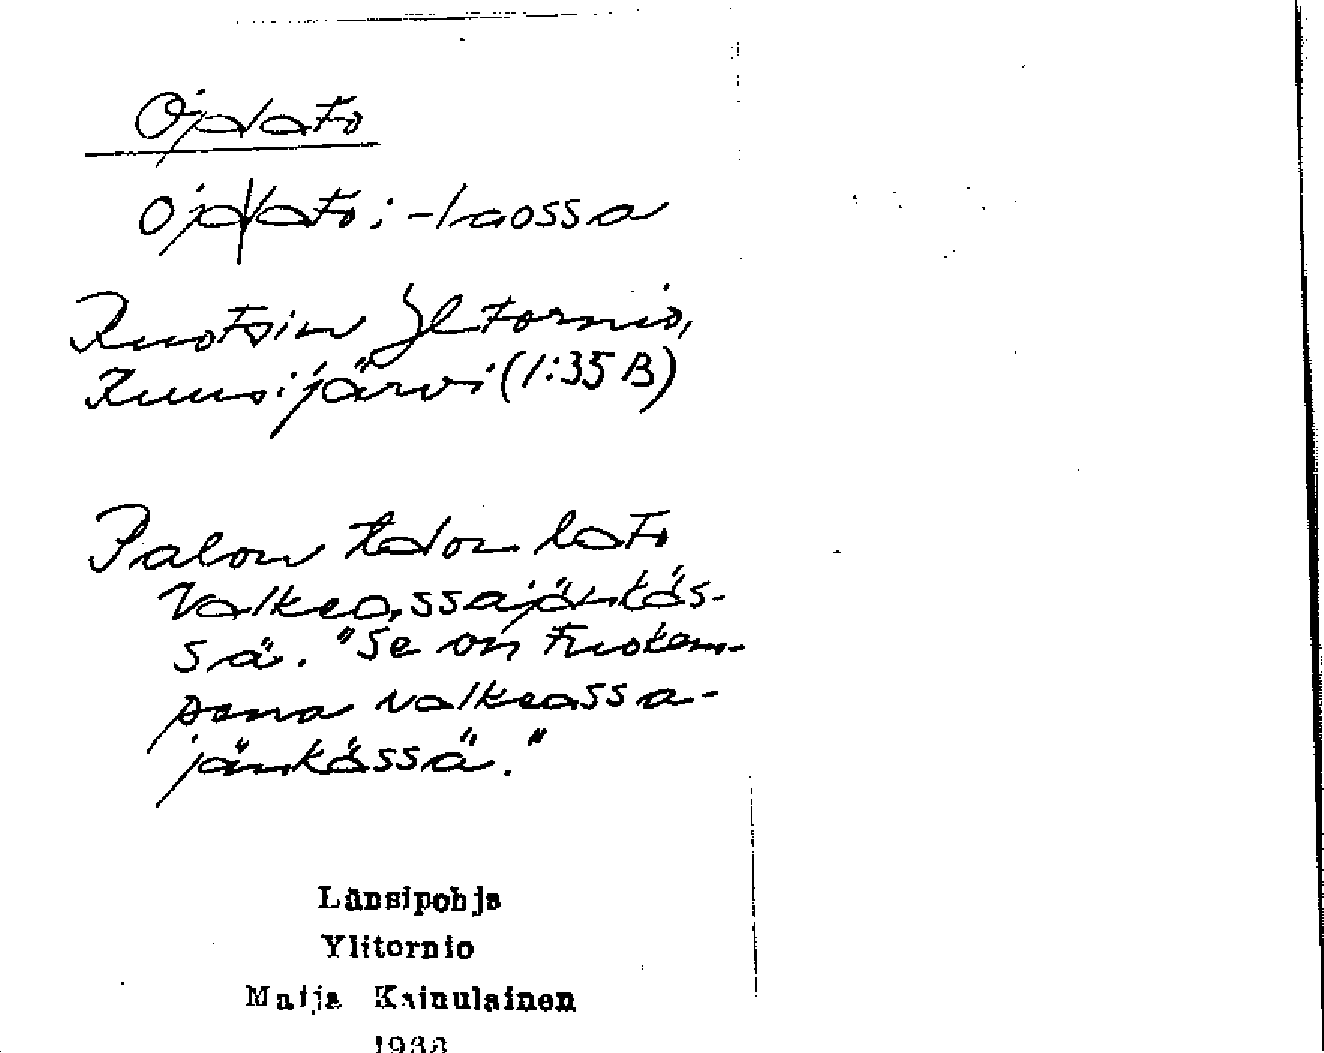 Ojalato
Ojalato: -laossa
Ruotsin Ylitornio,
Kuusijärvi (1:35 B)
Palon talon lato
Valkeassajänkäs-
sä. "Se on tuokam-
pana valkeassa-
jänkässä."
Länsipohja
Ylitornio
Maija Kainulainen